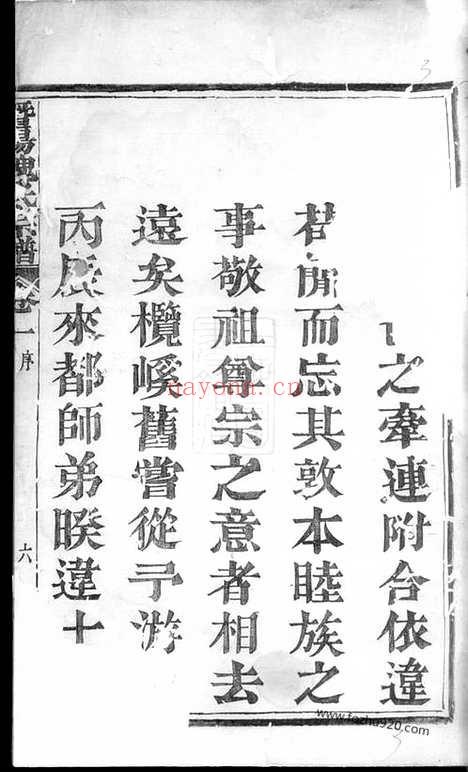 之牽連附合依違
而忘其敦本睦族之
事敬祖尊宗之意者相去
遠矣欖嵠舊嘗從予游
丙辰來都師弟暌違十
氏宗譜
卷一
序
六
nayona.cn
www.fazhu920.com